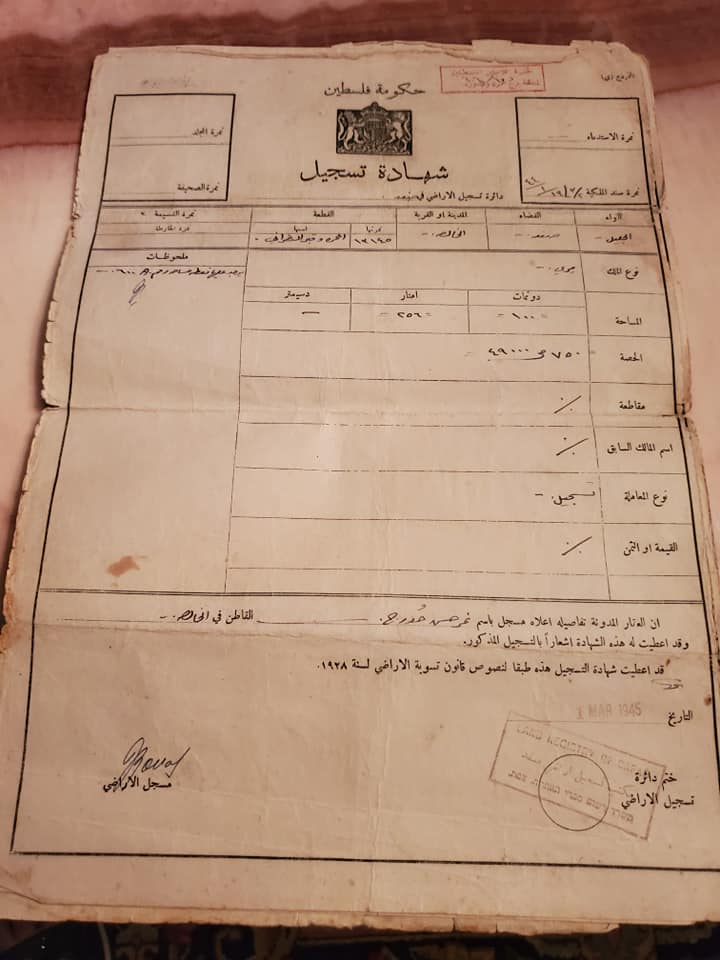 حكومة فلسطين
شهادة تسجيل
دائرة تسجيل الاراضي في صفد
نمرة الاستدعاء
نمرة سند الملكية
نمرة المجلد
نمرة الصحيفة
اللواء
القضاء
المدينة او القرية
القطعة
نمرتها
اسمها
نمرة القسيمة
الجليل
صفد
الخالصة
١٣١٤٥
نوع الملك
ميري
ملحوظات
المساحة
دونمات
امتار
دسيمتر
١٠٠
٢٥٦
—
الحصة
٧٥٠ من ٤٩٠٠٠
مقاطعة
٪
اسم المالك السابق
٪
نوع المعاملة
تسجيل
القيمة او الثمن
٪
ان العقار المدونة تفاصيله اعلاه مسجل باسم نمر حسن القاطن في الخالصة
وقد اعطيت له هذه الشهادة اشعاراً بالتسجيل المذكور.
قد اعطيت شهادة التسجيل هذه طبقا لنصوص قانون تسوية الاراضي لسنة ١٩٢٨.
التاريخ
1 MAR 1945
LAND REGISTRY OF
ختم دائرة
تسجيل الاراضي
مسجل الاراضي